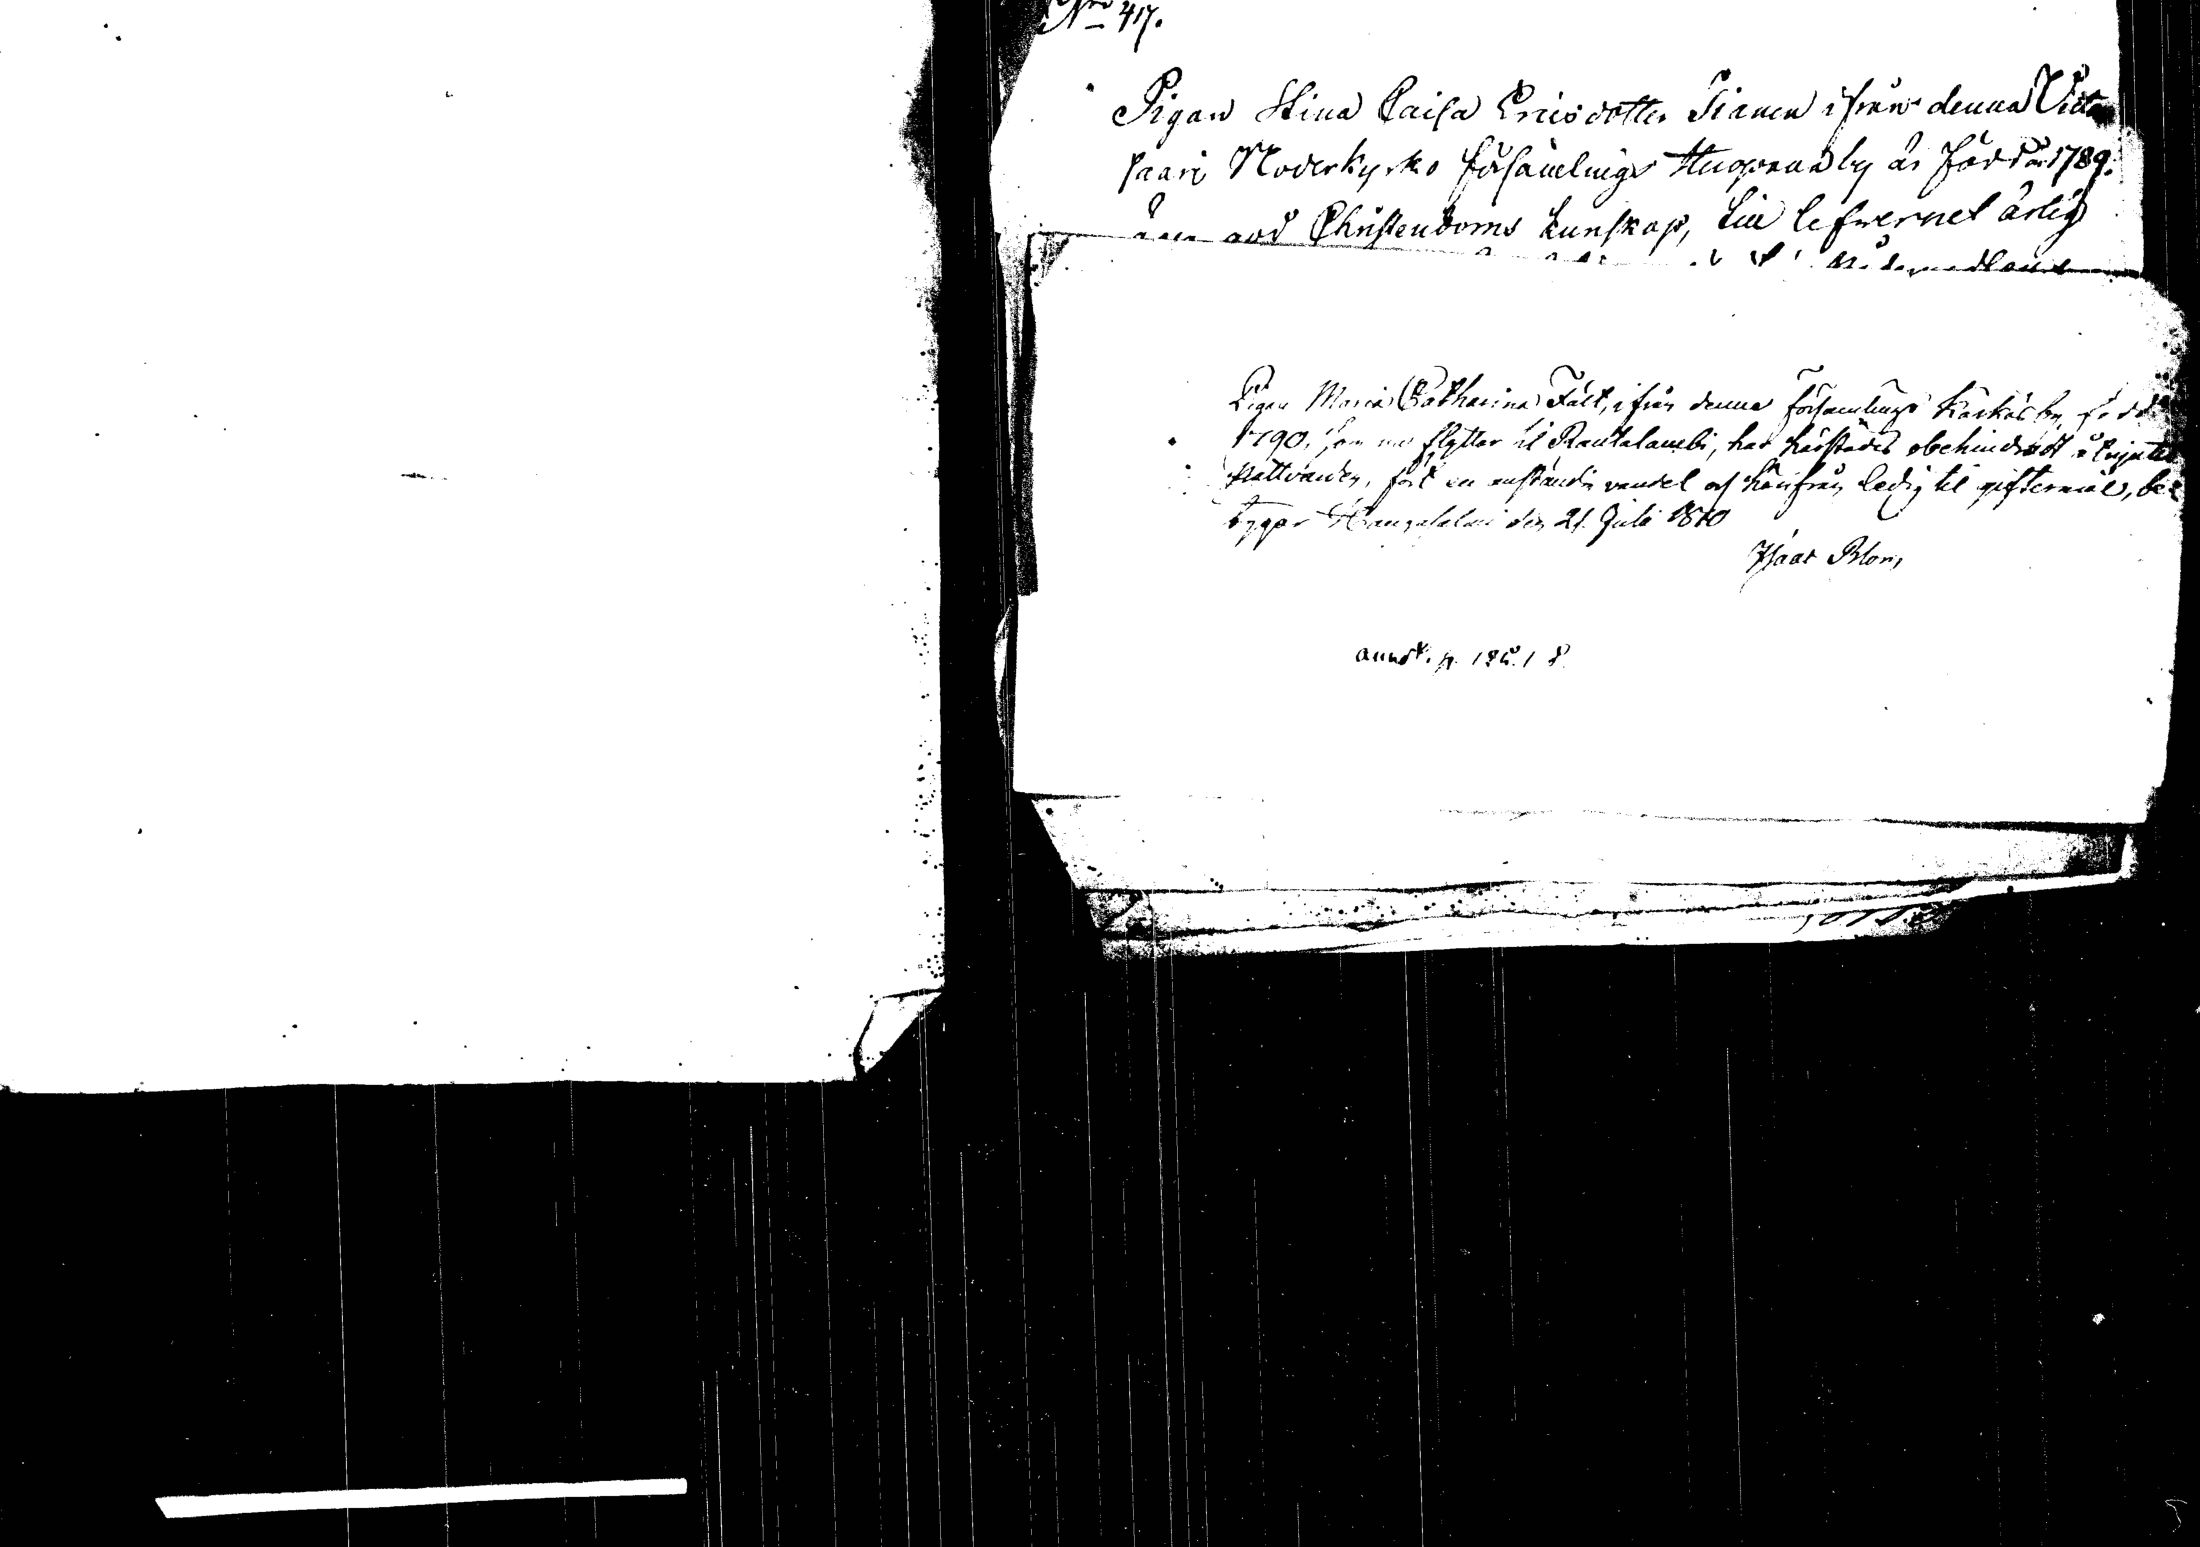 Nro 417.
Pigan Stina Caisa Ericsdotter Tianen ifrån denna Vita
saari Moderkyrko församlings by är född år 1789.
god Christendoms kunskap, till lefvernet ärlig
Pigan Maria Catharina Fält, ifrån denna församlings Kärkäs by, född
1790, som nu flyttar til Rautalambi, har härstädes obehindradt åtnjutit
Nattvarden, fört en anständig vandel och härifrån ledig til giftermål, be-
tygar Hangasalmi den 21 Juli 1810
Isaac Blom
annot. p.